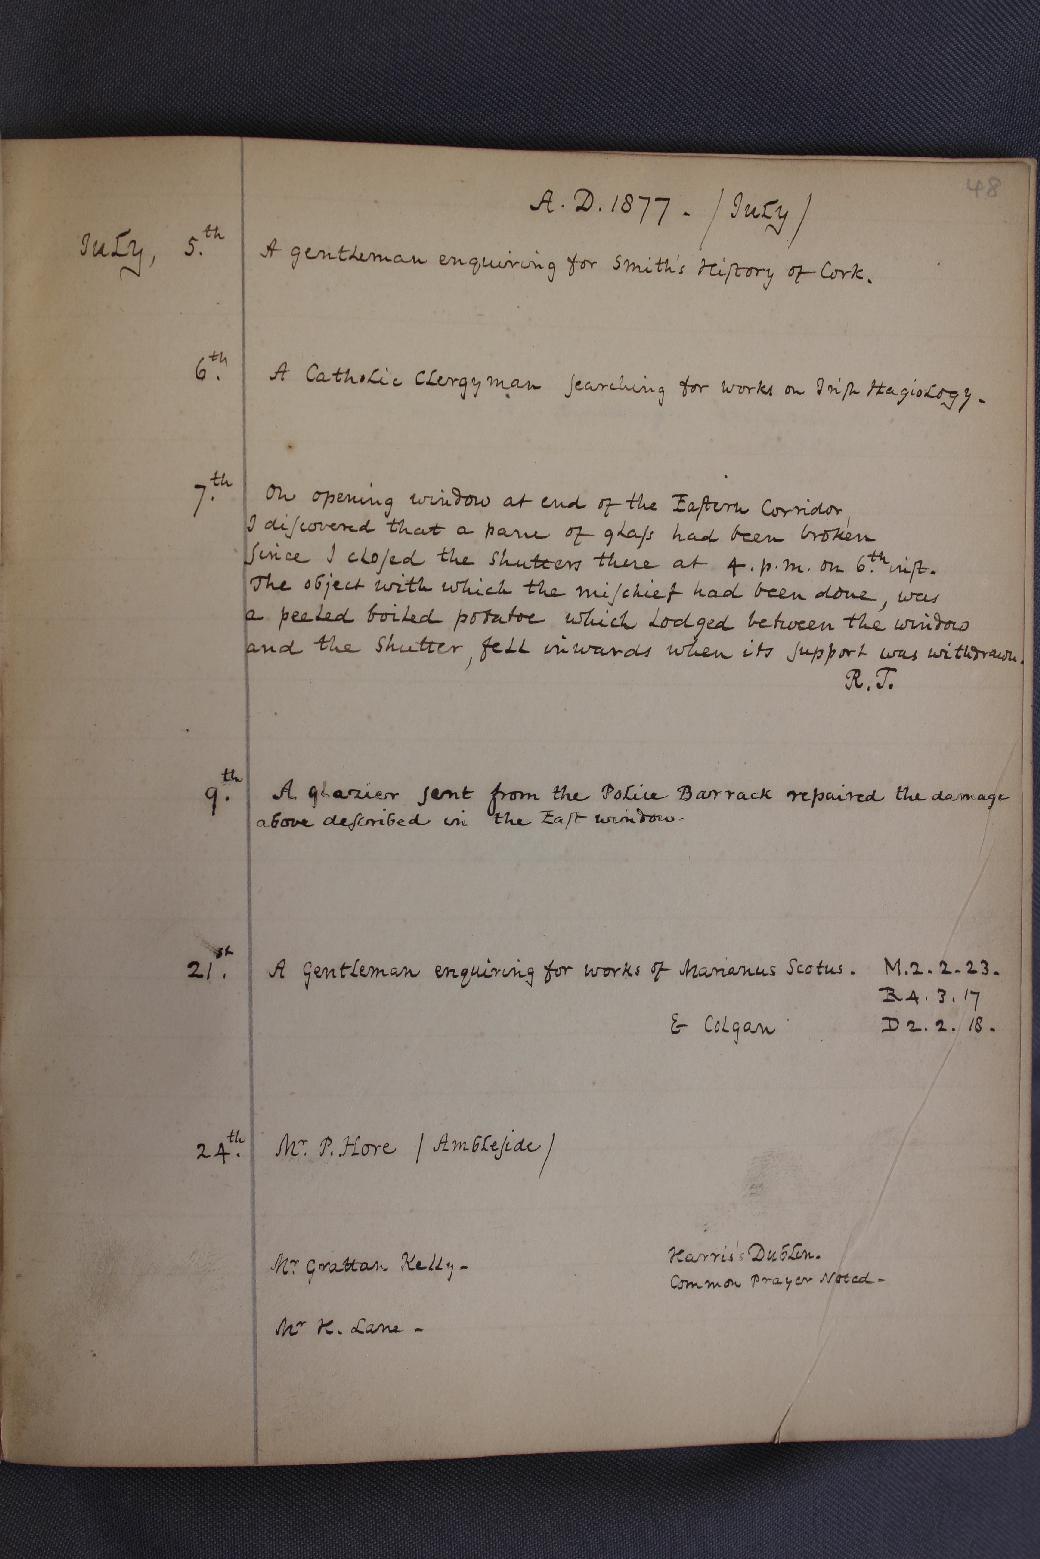 48
A. D. 1877. - / July /
July, 5.th A gentleman enquiring for Smith's Hiſtory of Cork.
6.th A Catholic Clergyman ſearching for works on Iriſh Hagiology.
7.th On opening window at end of the Eaſtern Corridor,
I diſcovered that a pane of glaſs had been broken
ſince I cloſed the Shutters there at 4. p.m. on 6.th inſt.
The object with which the miſchief had been done, was
a peeled boiled potatoe which lodged between the window
and the Shutter, fell inwards when its ſupport was withdrawn.
R. T.
9.th A glazier ſent from the Police Barrack repaired the damage
above deſcribed in the Eaſt window.
21.st A Gentleman enquiring for works of Marianus Scotus. M. 2. 2. 23.
R 4. 3. 17
& Colgan D 2. 2. 18.
24.th Mr. P. Hore / Ambleſide /
Mr Grattan Kelly - Harris's Dublin.
Common Prayer Noted -
Mr H. Lane -